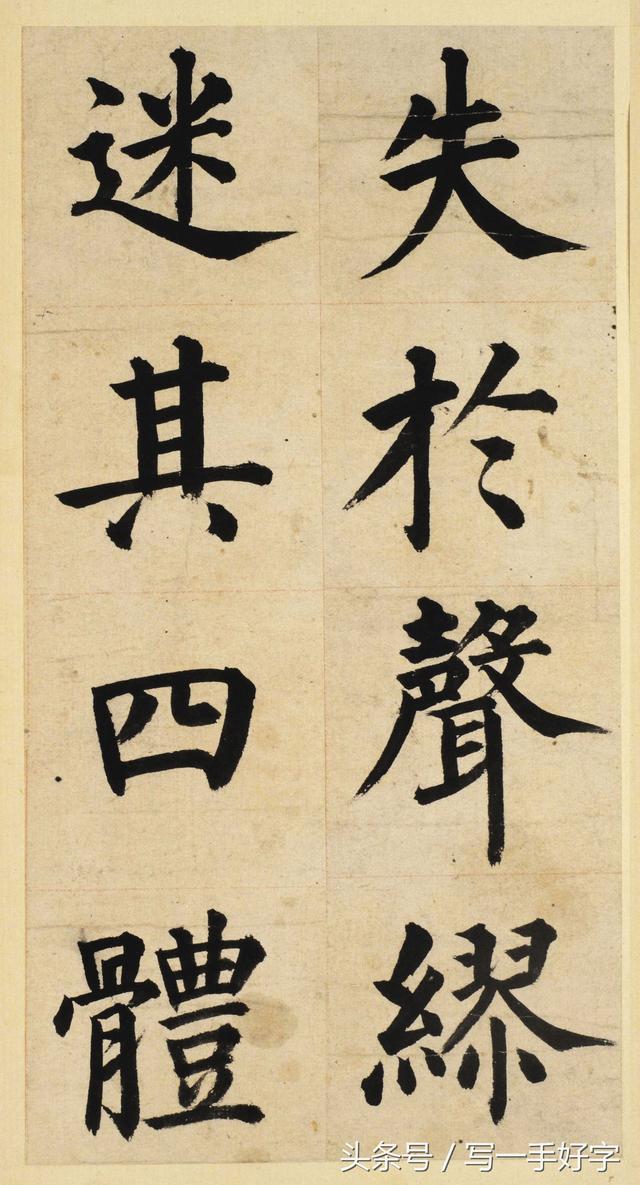 失於聲繆
迷其四體
头条号／写一手好字